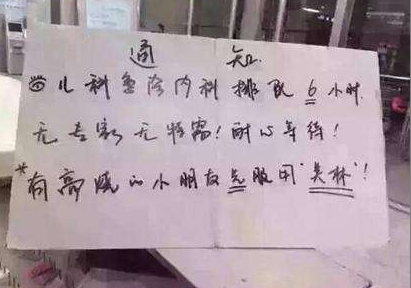 通 知
儿科急诊内科排队6小时.
无专家无特需!耐心等待!
*有高烧的小朋友先服用"美林"!